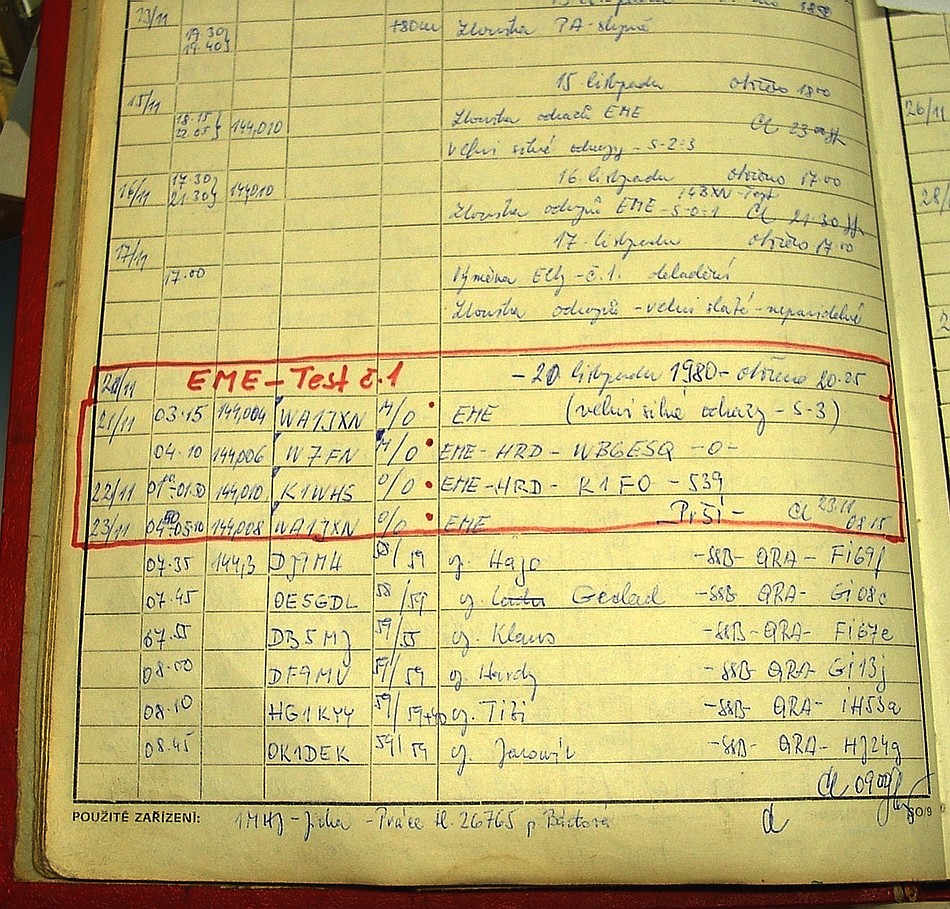 23/11
19.30
19.40 +80m Zkouška PA-
15. listopadu otvřeno 18.00
15/11
18.15
22.05 144,010 Zkouška odrazů EME
Velmi silné odrazy - S-2÷3
16. listopadu otvřeno 17.00
16/11 17.30
21.30 144,010
Zkouška odrazů EME - S-0÷1
17. listopadu otvřeno 17.00
17/11
17.00 Výměna - č.1. doladění
Zkouška odrazů - velmi slabé - nepravidelné
EME-Test č.1 -20 listopadu 1980- otvřeno 20.25
21/11 03.15 144,004 WA1JXN M/O EME (velmi silné odrazy - S-3)
04.10 144,006 W7FN M/O EME-HRD - WB6ESQ -O-
22/11 01.50 144,010 K1WHS O/O EME-HRD- K1FO - 539
23/11 144,008 WA1JXN O/O EME Prší - Cl 23.11 08.15
07.35 144,3 DJ9MH 58/59 g. Hajo -SSB- QRA- FI69f
07.45 OE5GDL 58/59 g. -SSB QRA- GI08c
07.55 DB5MJ 59/55 g. Klaus -SSB-QRA- FI67e
08.00 DF9MV 59/59 g. Hardy -SSB QRA- GI13j
08.10 HG1KYY 59/59+40 g. Tibi -SSB- QRA- IH53a
08.45 OK1DEK 59/59 g. -SSB- QRA- HJ24g
Cl 09.00
POUŽITÉ ZAŘÍZENÍ: 1MHJ- Jirka - Práce tl. 26765 p.